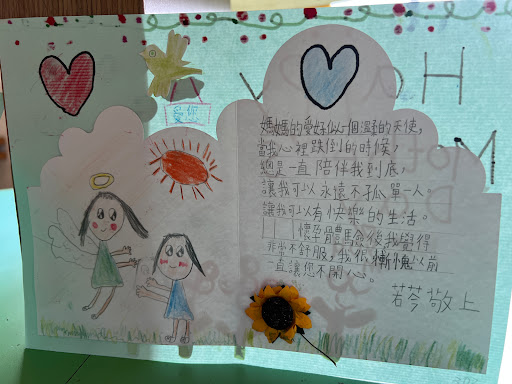 愛您
媽媽的愛好似一個溫暖的天使，
當我心裡跌倒的時候，
總是一直陪伴我到底，
讓我可以永遠不孤單一人。
讓我可以有快樂的生活。
懷孕體驗後我覺得
非常不舒服，我很慚愧以前
一直讓您不開心。
若苓敬上